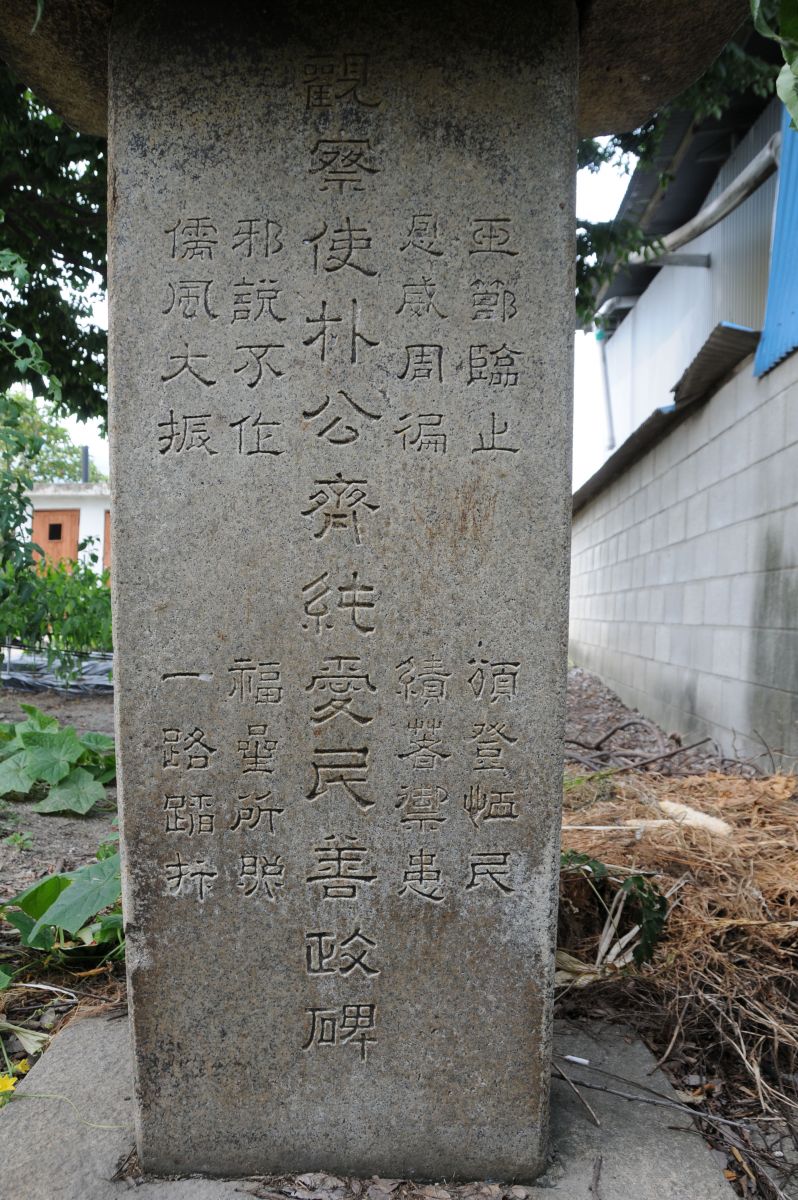 玉節臨止 頌登恤民
恩威周徧 績著禦患
觀察使朴公齊純愛民善政碑
邪說不作 福星所照
儒風大振 一路蹈抃